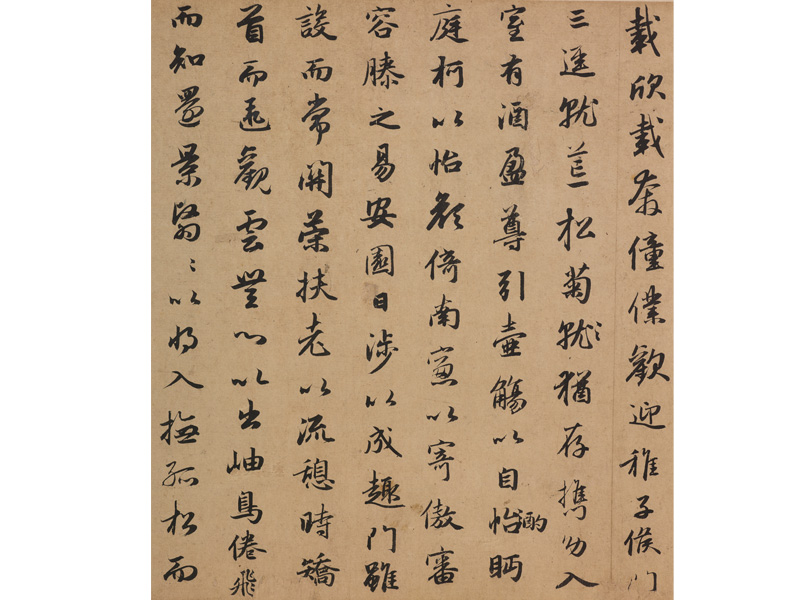 載欣載奔僮僕歡迎稚子候門
三逕就荒松菊就猶存携幼入
室有酒盈尊引壺觴以自怡酌眄
庭柯以怡顏倚南窓以寄傲審
容膝之易安園日涉以成趣門雖
設而常關策扶老以流憩時矯
首而遐觀雲無心以出岫鳥倦飛
而知還景翳〻以將入撫孤松而